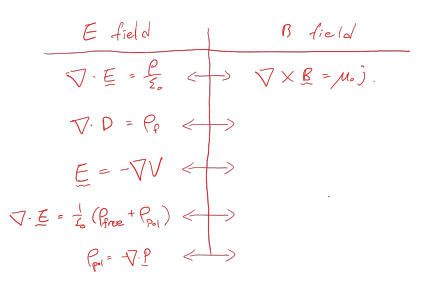 E field B field
∇ · E = ρ/ε₀ ↔ ∇ × B = μ₀ j.
∇ · D = ρ_f ↔
E = -∇V ↔
∇ · E = 1/ε₀ (ρ_free + ρ_pol) ↔
ρ_pol = -∇ · P ↔